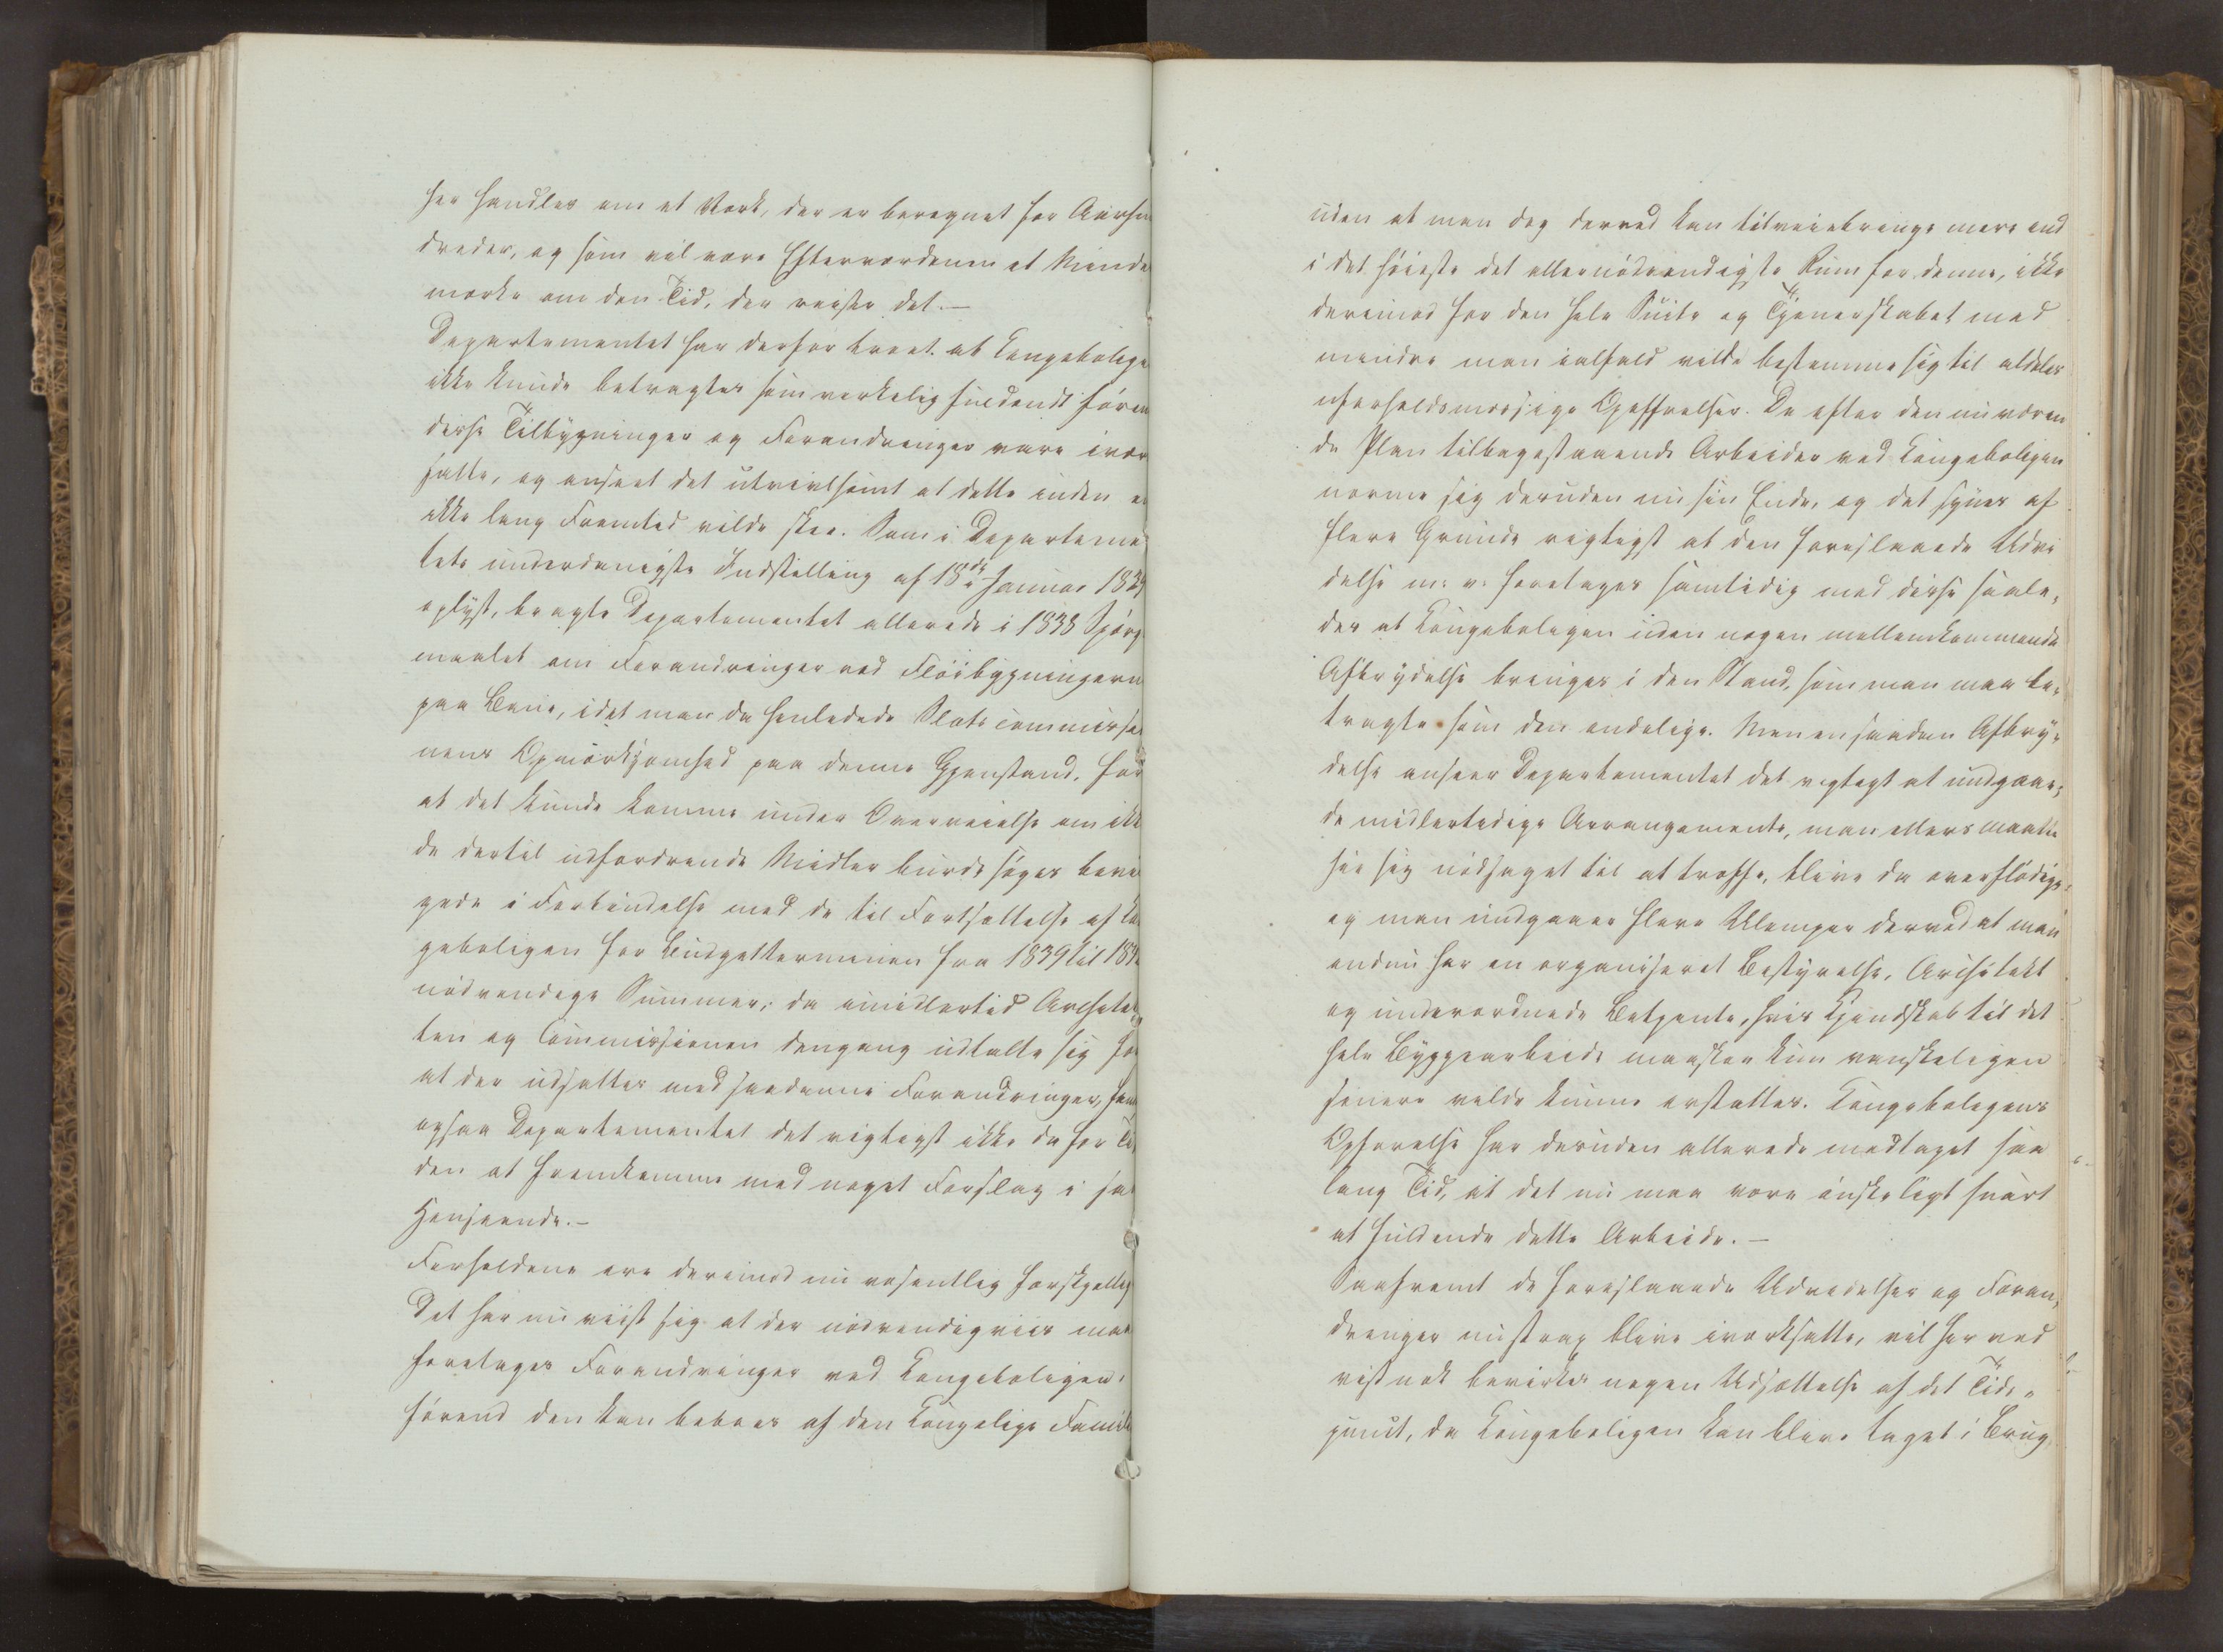 her handles om et Værk, der er beregnet for Aarhun
dreder, og som vil være Efterverdenen et Minde
mærke om den Tid, der reiste det.—
Departementet har derfor troet at Kongebolige
ikke kunde betragtes som virkelig fuldendt føren
disse Tilbygninger og Forandringer vare ivær
satte, og anseet det utvivlsomt at dette inden en
ikke lang Fremtid vilde skee. Som i Departeme
tets underdanigste Indstilling af 18de Januar 1839
oplyst, bragte Departementet allerede i 1838 Spørgs
maalet om Forandringer ved Fløibygningerne
paa Bane, idet man da henledede Slotscommissio
nens Opmærksomhed paa denne Gjenstand, for
at det kunde komme under Overveielse om ikke
de dertil udfordrende Midler burde søges bevil
gede i Forbindelse med de til Fortsættelse af Kon
geboligen for Budgetterminen fra 1839 til 184
nødvendige Summer; da imidlertid Architek,
ten og Commissionen dengang udtalte sig for
at der udsattes med saadanne Forandringer, fandt
ogsaa Departementet det rigtigst ikke da for Ti
den at fremkomme med noget Forslag i saa
Henseende.—
Forholdene ere derimod nu væsentlig forskjellig
Det har nu viist sig at der nødvendigviis maa
foretages Forandringer ved Kongeboligen,
førend den kan beboes af den Kongelige Famili
uden at man dog derved kan tilveiebringe mere end
i det høieste det allernødvendigste Rum for denne, ikke
derimod for den hele Suite og Tjenerskabet med
mindre man ialfald vilde bestemme sig til aldeles
uforholdsmæssige Opoffrelser. De efter den nuværen
de Plan tilbagestaaende Arbeider ved Kongeboligen
nærme sig desuden nu sin Ende, og det synes af
flere Grunde rigtigst at den foreslaaede Udvi
delse m: v: foretages samtidig med disse saale,
des at Kongeboligen uden nogen mellemkommende
Afbrydelse bringes i den Stand, som man maa be,
tragte som den endelige. Men en saadan Afbry,
delse anseer Departementet det vigtigt at undgaae;
de midlertidige Arrangements, man ellers maatte
see sig nødsaget til at træffe, blive da overflødige,
og man undgaaer flere Ulemper derved at man
endnu har en organiseret Bestyrelse, Architekt
og underordnede Betjente, hvis Kjendskab til det
hele Byggearbeide maaskee kun vanskeligen
senere vilde kunne erstattes. Kongeboligens
Opførelse har desuden allerede medtaget saa
lang Tid, at det nu maa være ønskeligt snart
at fuldende dette Arbeide.—
Saafremt de foreslaaede Udvidelser og Foran,
dringer nu strax blive iværksatte, vil herved
vistnok bevirkes nogen Udsættelse af det Tids,
punct, da Kongeboligen kan blive taget i Brug,